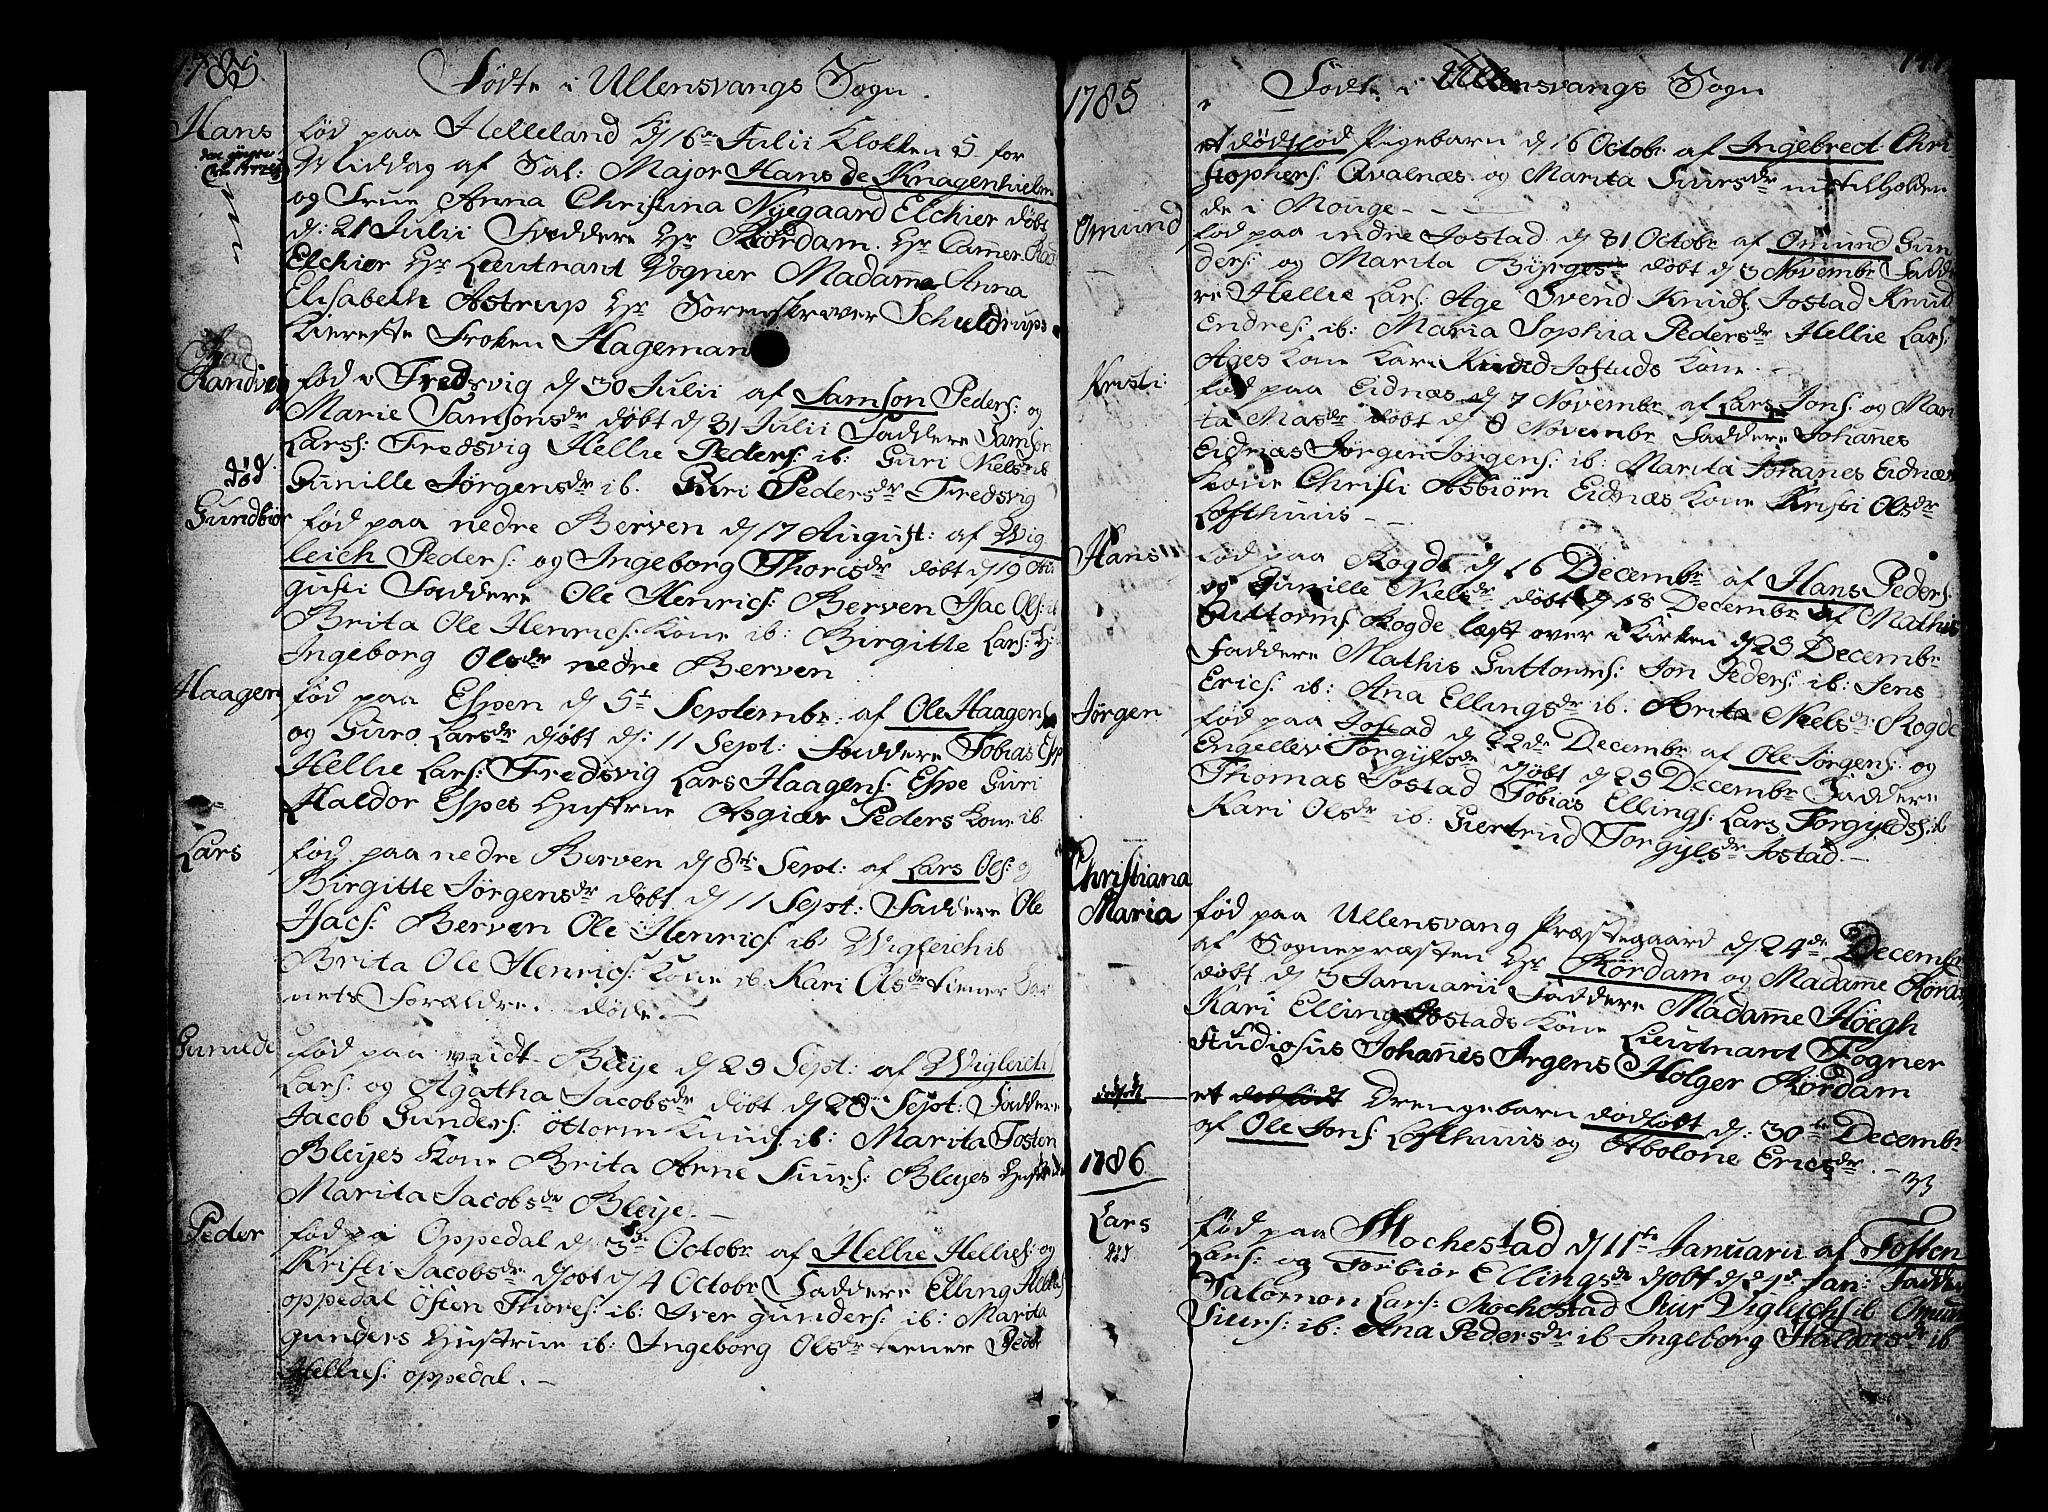 1785
Fødte i Ullensvangs Sogn.
Hans
fød paa Helleland d 16de Julii Klokken 5 for
Middag af Sal: Major Hans de Knagenhielm
og Frue Anna Christina Nyegaard Elchier døbt
d: 21 Julii Faddere Hr Rördam. Hr Camer
Elchier Hr Lieutnant Vogner Madame Anna
Elisabeth Astrup Hr Sorenskriver Schuldrups
Kiereste Frøken Hageman
Randvig
fød i Fredsvig d 30 Julii af Samson Peders: og
Marie Samsonsdr døbt d 31 Julii Faddere Samson
Larss: Fredsvig Hellie Peders: ib: Guri Nielsdr ib
død.
Gunille Jørgensdr ib. Guri Pedersdr Fredsvig
Gundbiør
fød paa nedre Berven d 17 August: af Wig
leich Peders: og Ingeborg Thorisdr døbt d 19 Au
gusti Faddere Ole Henrics: Berven Isac Ols: ib
Brita Ole Henrics: Kone ib: Birgitte Lars: H:
Ingeborg Olsdr nedre Berven
Haagen
fød paa Espen d 5t Septembr: af Ole Haagens
og Guro Larsdr døbt d: 11 Sept: Faddere Tobias Esp
Hellie Lars: Fredsvig Lars Haagens: Espe Guri
Haldor Espes Hustrue Asgiær Peders Kone ib.
Lars
fød paa nedre Berven d 8de Sept: af Lars Ols: og
Birgitte Jørgensdr døbt d 11 Sept: Faddere Ole
Isacs: Berven Ole Henrics: ib: Wigleich ib
Brita Ole Henrics: Kone ib. Kari Olsdr tiener Bar
nets Forældre. døde. —
Gunilde
fød paa Bleije d 29 Sept: af Wigleich
Lars: og Agatha Jacobsdr døbt d 28 Sept: Faddere
Jacob Gunders: Ottorm Knuds: ib: Marita Tosten
Bleijes Kone Brita Arne Siurs: Bleijes Hustrue
Marita Jacobsdr Bleije. —
Peder
fød på Oppedal d 3de Octobr af Hellie Hellies: og
Kristi Jacobsdr døbt d 4 Octobr Faddere Elling Hellies
oppedal Osten Thores: ib: Iver gunders: ib: Marita
gunders Hustrue ib: Ingeborg Olsdr tiener Peder
Hellies: oppedal. —
1785
Fødte i Ullensvangs Sogn
et dødfød Pigebarn d 16 Octobr af Ingebrect Chri
stophers: Qvalnæs og Marita Siursdr tilholden
de i Mouge —
Omund
fød paa indre Jostad d 31 Octobr af Omund Gun
ders: og Marita døbt d 3 Novembr Fadde
re Hellie Lars: Age Svend Knuds Jostad Knud
Endres: ib: Maria Sophia Pedersdr Hellie Lars:
Ages Kone Kari Knud Jostads Kone. —
Kristi
fød paa Eidnæs d 7 Novembr af Lars Jons: og Mari
ta Masdr døbt d 8 Novembr Faddere Johannes
Eidnæs Jørgen Jørgens: ib: Marita Johanes Eidnæs
Kone Christi Asbiørn Eidnæs Kone Kristi Olsdr
Lofthuus —
Hans
fød paa Rogde d 16 Decembr af Hans Peders:
og Gunille Nielsdr døbt d 18 Decembr af Mathis
Guttorms Rogde læst over i Kirken d 23 Decembr
Faddere Mathis Guttorms: Jon Peders: ib: Jens
Erics: ib: Ana Ellingsdr ib. Brita Nielsdr Rogde
Jørgen
fød paa Jostad d 22de Decembr af Ole Jørgens: og
Engellev Torgylsdr døbt d 25 Decembr Faddere
Thomas Jostad Tobias Ellings: Lars Torgylds: ib
Kari Olsdr ib: Giertrud Torgylsdr Jostad. —
Christiana
Maria
fød paa Ullensvang Præstegaard d 24de Decembr
af Sognepræsten Hr Rördam og Madame Rörd
døbt d 3 Januarii Faddere Madame Høegh
Kari Elling Jostads Kone Lieutnant Fogner
Studiosus Johannes Irgens Holger Rördam
dødfødt
et dødfødt Drengebarn dødfødt d: 30te Decembr
af Ole Jons: Lofthuus og Abolone Ericsdr. —
33
1786
Lars
død
fød paa Mochestad d 11te Januarii af Tosten
Lars: og Torbiør Ellingsdr døbt d 21d Jan: Fadde
Salomon Lars: Mochestad Siur Vigleichs ib Omun
Siurs: ib: Ana Pedersdr ib Ingeborg Haldorsdr ib